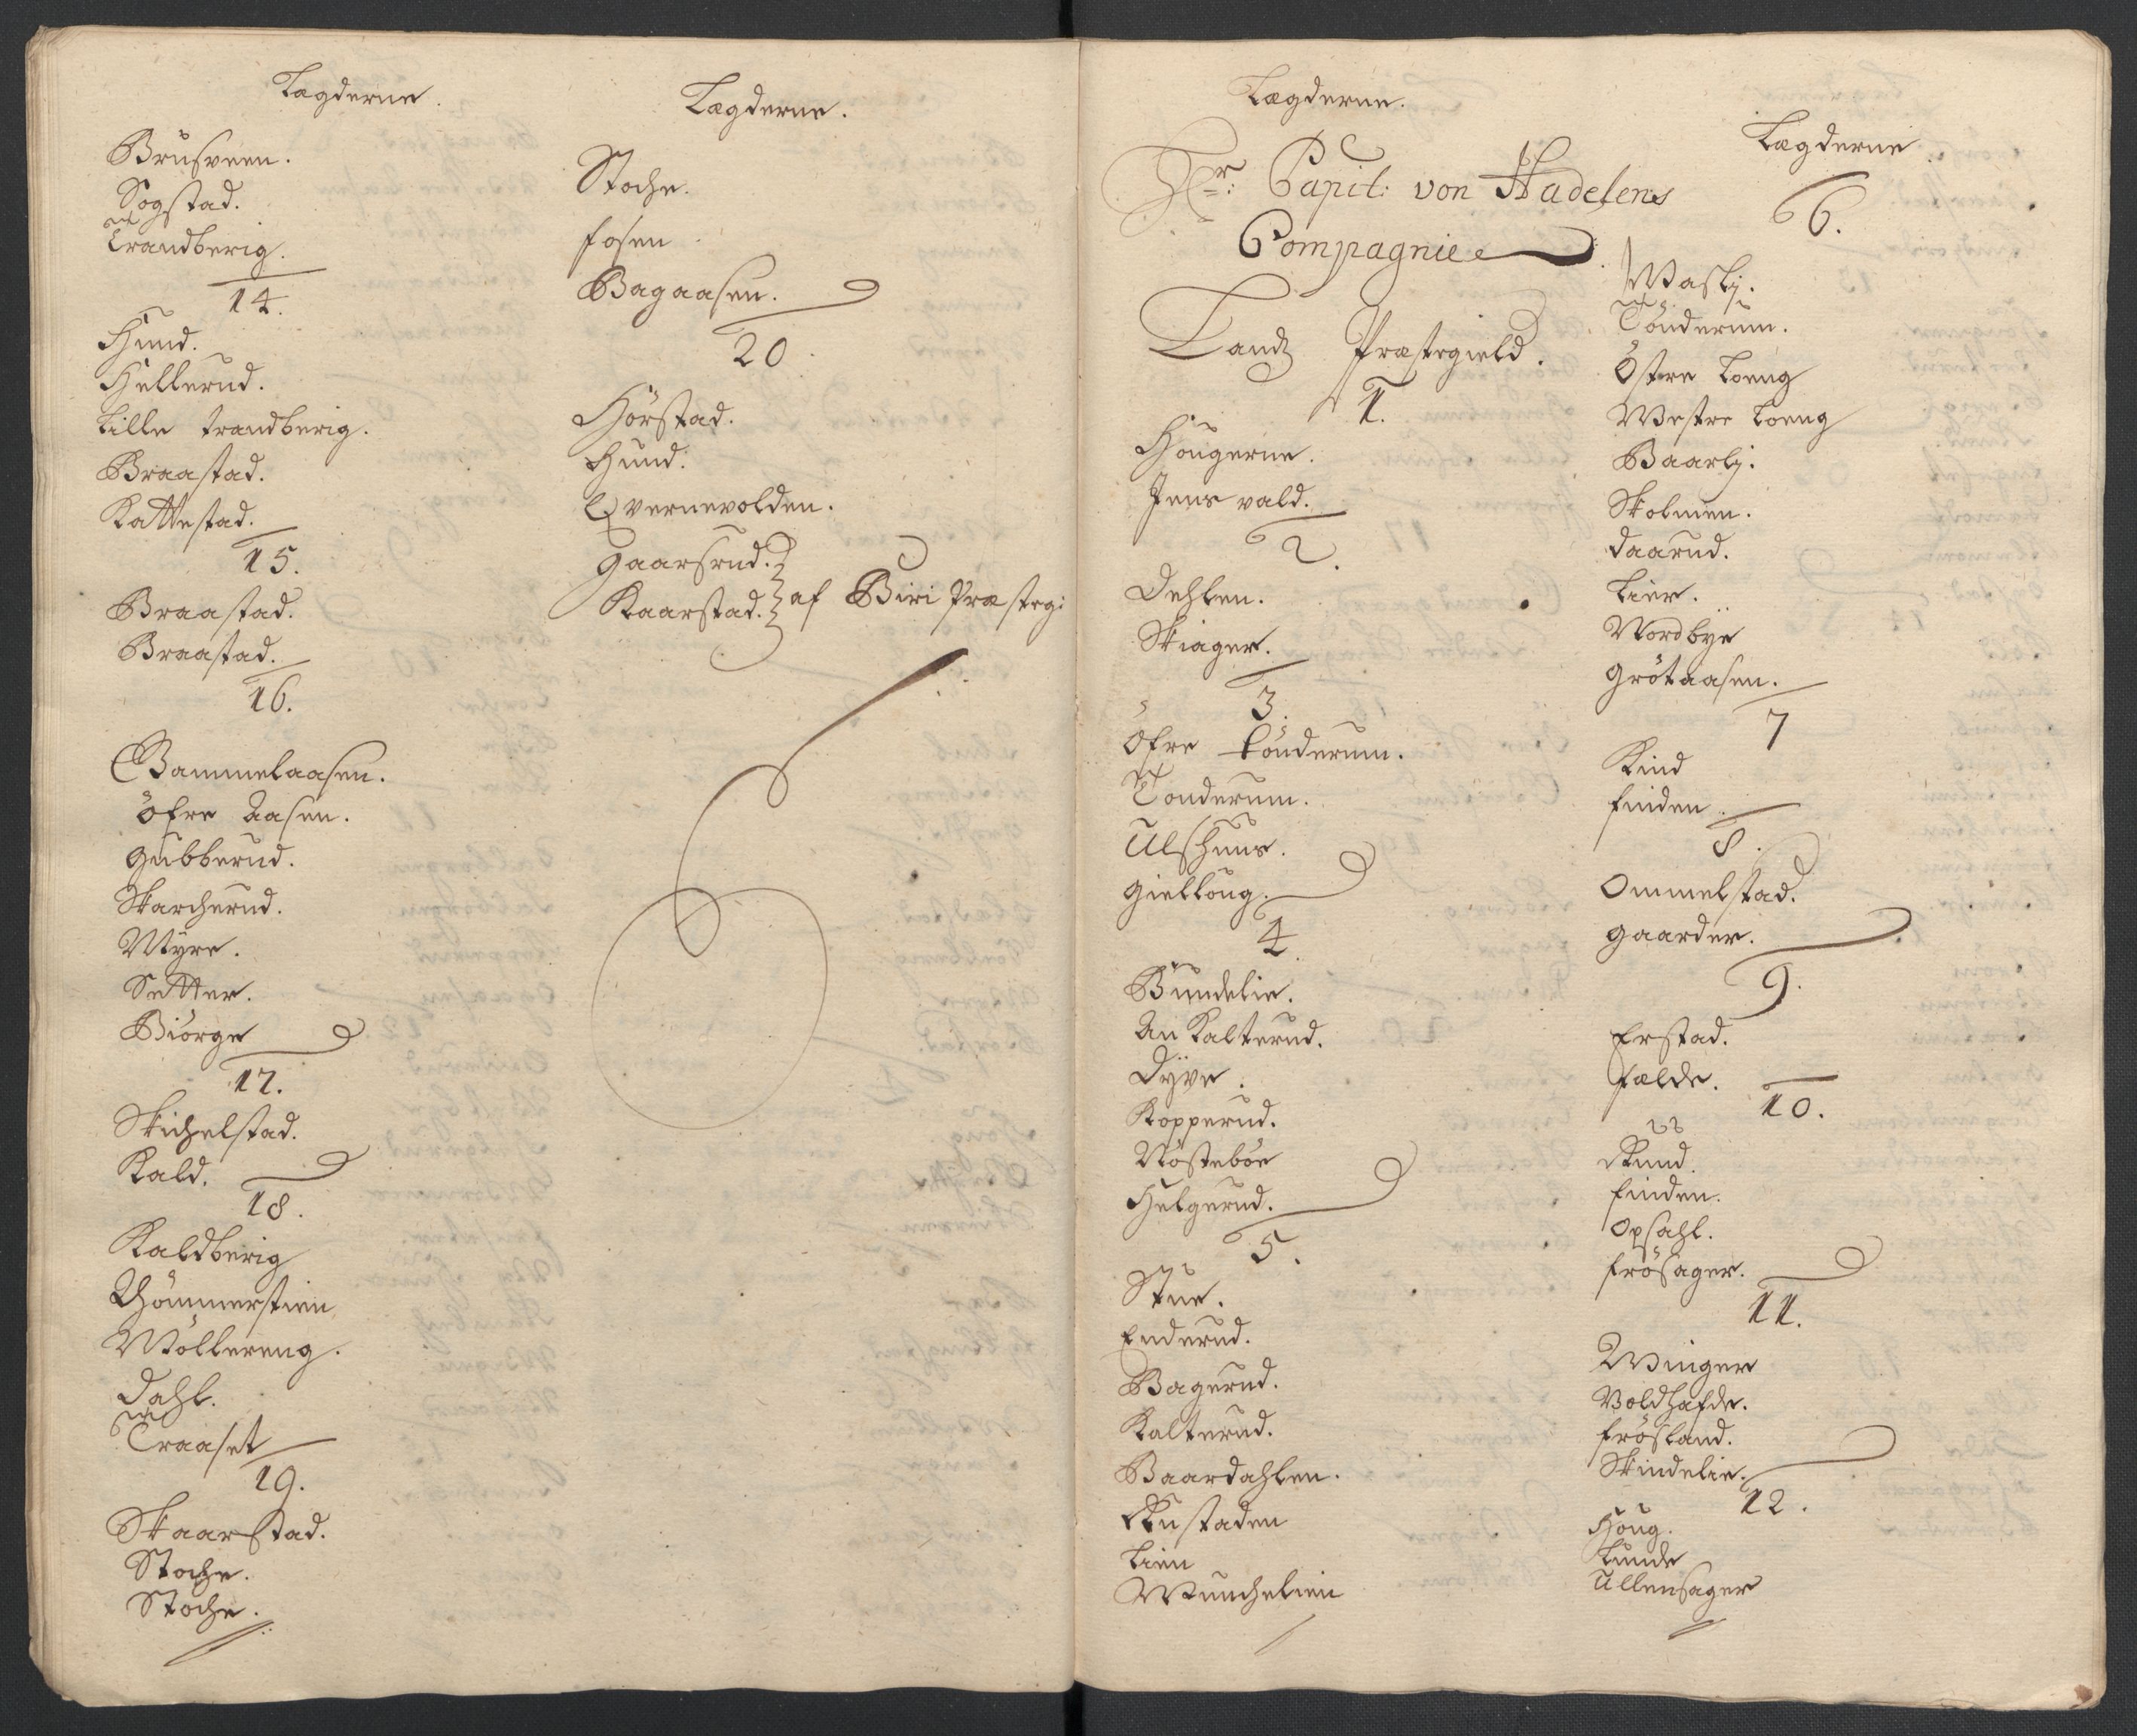 Lægderne.
Brusveen.
Sogstad.
Trandberig.
14.
Hund.
Hellerud.
Lille Trandberig.
Braastad.
Kattestad.
15.
Braastad.
Braastad.
16.
Gammelaasen.
Öfre Aasen.
Gubberud.
Skarcherud.
Myre.
Setter.
Biörge
17.
Skichelstad.
Kald.
18.
Kaldberig
Thömmerstien
Möllereng.
Dahl.
Traaset
19.
Skaarstad.
Stoche.
Stoche.
Lægderne.
Stoche.
Fosen
Bagaasen.
20
Hörstad.
Hund.
Qvernevolden.
Gaarsrud.
Kaarstad. af Biri Præsteg:
Lægderne.
Hr: Capit: von Hadelens
Compagnie
Landz Præstegield.
1.
Hougerne.
Jensvald.
2.
Dehlen.
Skiager.
3.
Öfre Tönderum.
Tonderum.
Ulshuus.
Gielloug.
4.
Bundelie.
An Kalterud.
Dÿve.
Kopperud.
Nösteböe
Helgerud.
5.
Stue.
Enderud.
Bagerud.
Kalterud.
Baardahlen.
Rustaden
Lien
Munchelien
Lægderne
6.
Waslj.
Tönderum.
Östre Loeng
Westre Loeng
Baarlj.
Skolmen.
Daarud.
Lier.
Nordbye
Grötaasen.
7
Kind
Finden.
8.
Ommelstad.
Gaarder.
9.
Erstad.
Fælde.
10.
Rund.
Finden.
Opsahl.
Frösager.
11.
Winger
Voldhafde.
Frösland.
Skindelie.
12.
Houg.
Lunde
Ullensager